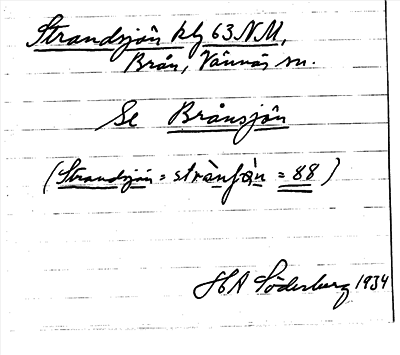 Strandsjön kly 63 NM,
Brån, Vännäs sn.
Se Brånsjön
(Strandsjön = strànfàn = 88)
HA Söderberg 1934